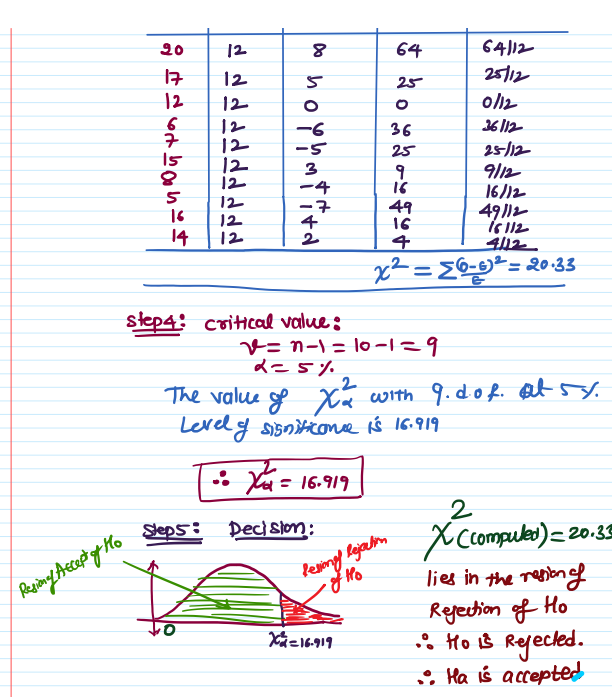 20 12 8 64 64/12
17 12 5 25 25/12
12 12 0 0 0/12
6 12 -6 36 36/12
7 12 -5 25 25/12
15 12 3 9 9/12
8 12 -4 16 16/12
5 12 -7 49 49/12
16 12 4 16 16/12
14 12 2 4 4/12
χ² = Σ(O-E)²/E = 20.33
Step4: Critical value:
ν = n-1 = 10-1 = 9
α = 5%
The value of χ²α with 9. d.o.f. at 5%
Level of significance is 16.919
∴ χ²α = 16.919
Step5: Decision:
Region of Accept of Ho
Region of Rejection
of Ho
0
χ²α = 16.919
χ²(computed) = 20.33
lies in the region of
Rejection of Ho
∴ Ho is Rejected.
∴ Ha is accepted